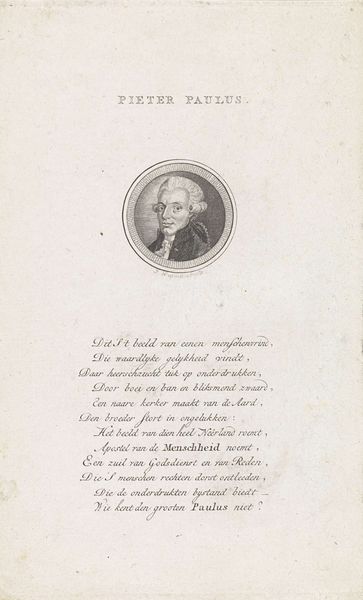 PIETER PAULUS.
Dit 's 't beeld van eenen menschenvrind,
Die waardlyke gelykheid vindt,
Daar heerschzucht tuk op onderdrukken,
Door boei en ban en bliksmend zwaard,
Een naare kerker maakt van de Aard.
Den broeder stort in ongelukken:
Het beeld van dien heel Neêrland roemt,
Apostel van de Menschheid noemt,
Een zuil van Godsdienst en van Reden,
Die 's menschen rechten dorst ontleeden,
Die de onderdrukten bystand biedt _
Wie kent den grooten Paulus niet?